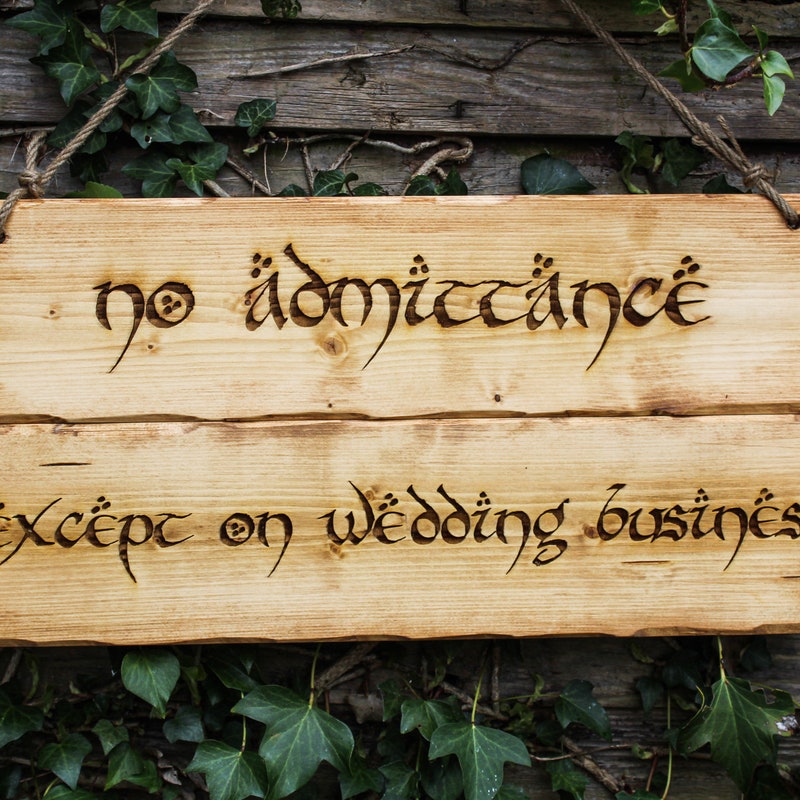 no admittance
except on wedding busines